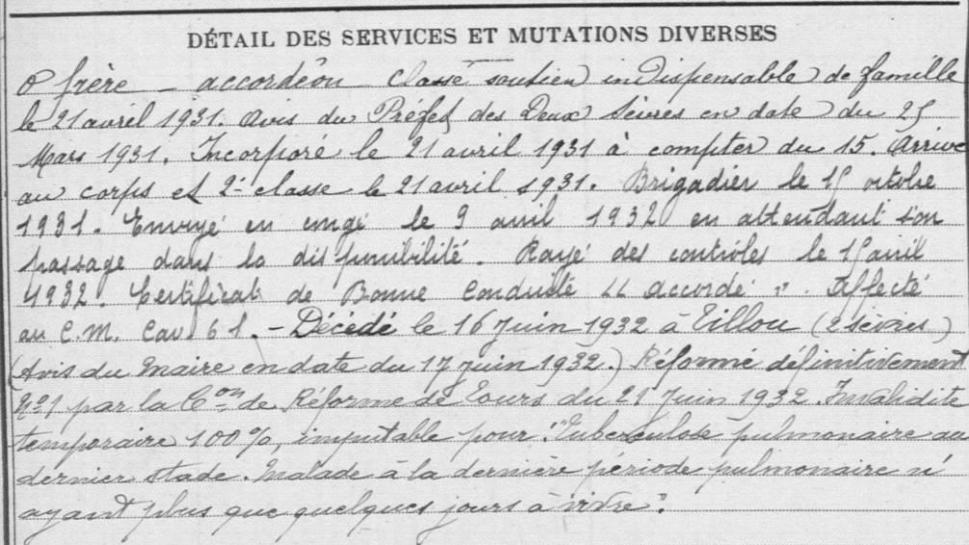 DÉTAIL DES SERVICES ET MUTATIONS DIVERSES
0 frère - accordéon Classé soutien indispensable de famille
le 21 avril 1931. Avis du Préfet des Deux Sèvres en date du 25
Mars 1931. Incorporé le 21 avril 1931 à compter du 15. Arrivé
au corps et 2e classe le 21 avril 1931. Brigadier le 15 octobre
1931. Envoyé en congé le 9 avril 1932 en attendant son
passage dans la disponibilité. Rayé des contrôles le 15 avril
1932. Certificat de Bonne Conduite "accordé". Affecté
au C.M. Cav 61. - Décédé le 16 Juin 1932 à Tillou (2 sèvres)
(Avis du Maire en date du 17 juin 1932.) Réformé définitivement
No 1 par la Con de Réforme de Tours du 21 Juin 1932. Invalidité
temporaire 100%, imputable pour: "Tuberculose pulmonaire au
dernier stade. Malade à la dernière période pulmonaire n'
ayant plus que quelques jours à vivre."